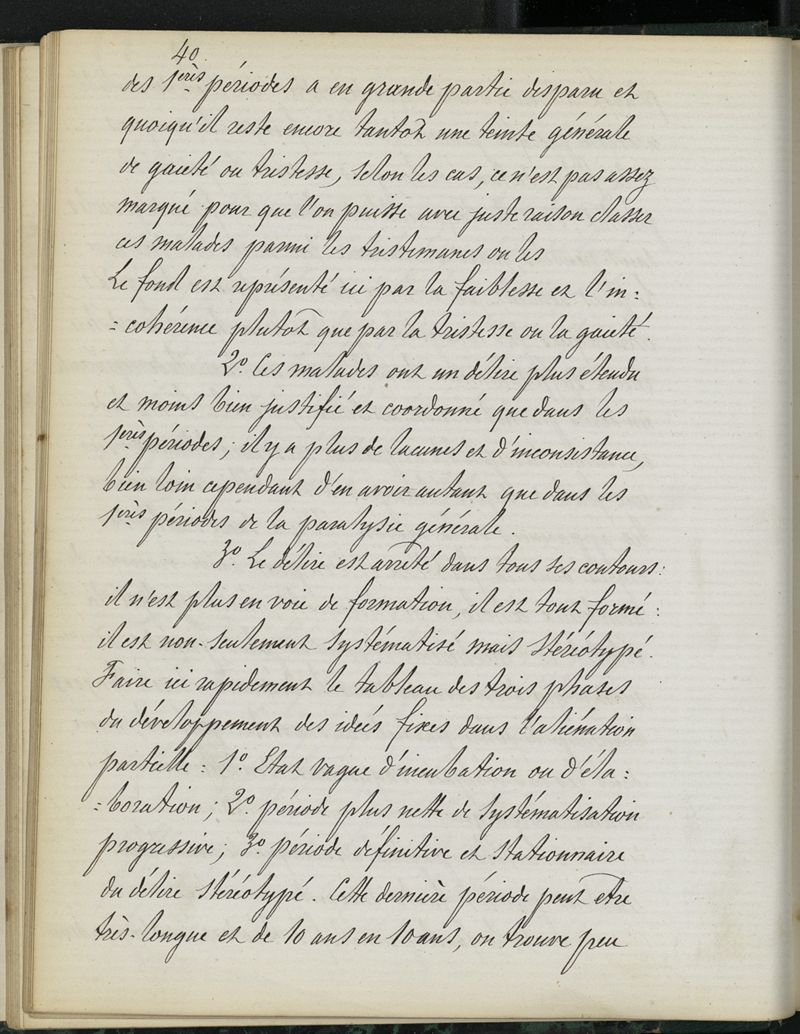 40
des 1ères périodes a en grande partie disparu et
quoiqu'il reste encore tantôt une teinte générale
de gaieté ou tristesse, selon les cas, ce n'est pas assez
marqué pour que l'on puisse avec juste raison classer
ces malades parmi les tristimanes ou les
Le fond est représenté ici par la faiblesse et l'in:
= cohérence plutôt que par la tristesse ou la gaieté.
2º. Ces malades ont un délire plus étendu
et moins bien justifié et coordonné que dans les
1ères périodes; il y a plus de lacunes et d'inconsistance,
bien loin cependant d'en avoir autant que dans les
1ères périodes de la paralysie générale.
3º. Le délire est arrêté dans tous ses contours:
il n'est plus en voie de formation, il est tout formé:
il est non-seulement systématisé mais stéréotypé.
Faire ici rapidement le tableau des trois phases
du développement des idées fixes dans l'aliénation
partielle: 1º. Etat vague d'incubation ou d'éla:
= boration; 2º. période plus nette de systématisation
progressive; 3º. période définitive et stationnaire
du délire stéréotypé. Cette dernière période peut être
très-longue et de 10 ans en 10 ans, on trouve peu